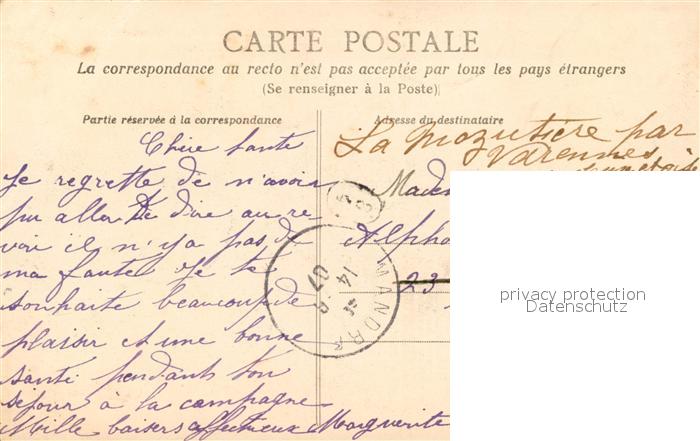 CARTE POSTALE
La correspondance au recto n'est pas acceptée par tous les pays étrangers
(Se renseigner à la Poste)
Partie réservée à la correspondance
Adresse du destinataire
Chère tante
Je regrette de n'avoir
pu aller te dire au re-
voir il n'y a pas de
ma faute Je te
souhaite beaucoup de
plaisir et une bonne
santé pendant ton
séjour à la campagne
Mille baisers affectueux Marguerite
La par
Varennes
Madem
Alpho
23
MANDR
14
07
privacy protection
Datenschutz